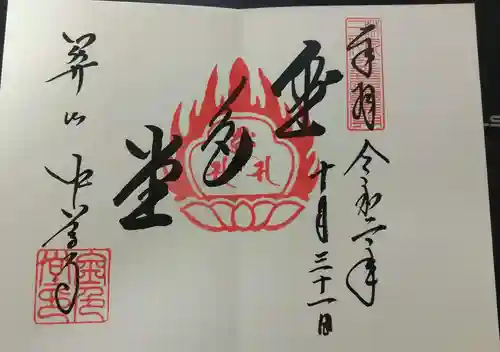 奉拝
令和二年
十月三十一日
金色堂
関山 中尊寺